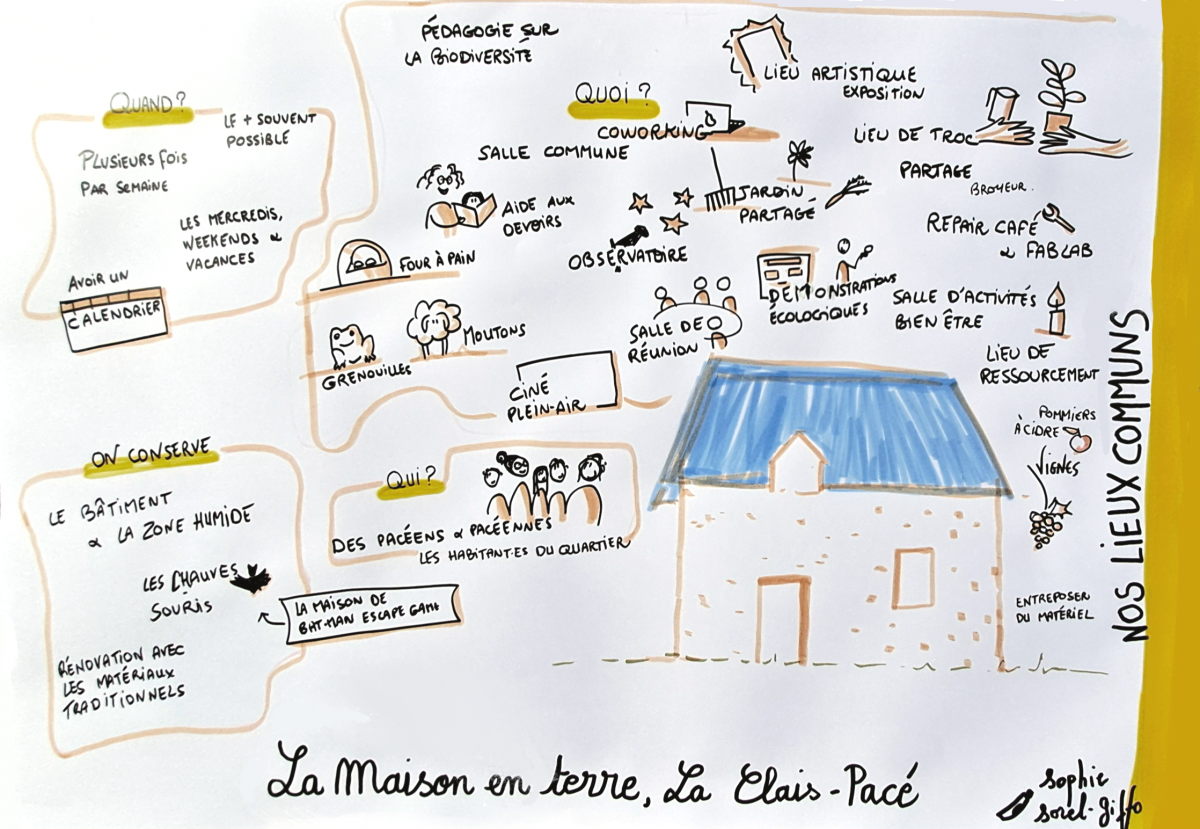 QUAND?
LE + SOUVENT
POSSIBLE
PLUSIEURS FOIS
PAR SEMAINE
LES MERCREDIS,
WEEKENDS &
VACANCES
AVOIR UN
CALENDRIER
PÉDAGOGIE SUR
LA BIODIVERSITÉ
QUOI ?
LIEU ARTISTIQUE
EXPOSITION
COWORKING
LIEU DE TROC
SALLE COMMUNE
PARTAGE
BROYEUR.
AIDE AUX
DEVOIRS
JARDIN
PARTAGÉ
REPAIR CAFÉ
& FABLAB
FOUR À PAIN
OBSERVATOIRE
DÉMONSTRATIONS
ÉCOLOGIQUES
SALLE D'ACTIVITÉS
BIEN ÊTRE
GRENOUILLES
MOUTONS
SALLE DE
RÉUNION
LIEU DE
RESSOURCEMENT
CINÉ
PLEIN-AIR
POMMIERS
À CIDRE
VIGNES
ENTREPOSER
DU MATÉRIEL
ON CONSERVE
LE BÂTIMENT
& LA ZONE HUMIDE
LES CHAUVES
SOURIS
LA MAISON DE
BAT-MAN ESCAPE GAME
RÉNOVATION AVEC
LES MATÉRIAUX
TRADITIONNELS
QUI ?
DES PACÉENS & PACÉENNES
LES HABITANT·ES DU QUARTIER
NOS LIEUX COMMUNS
La Maison en terre, La Clais-Pacé
sophie
sorel-giffo